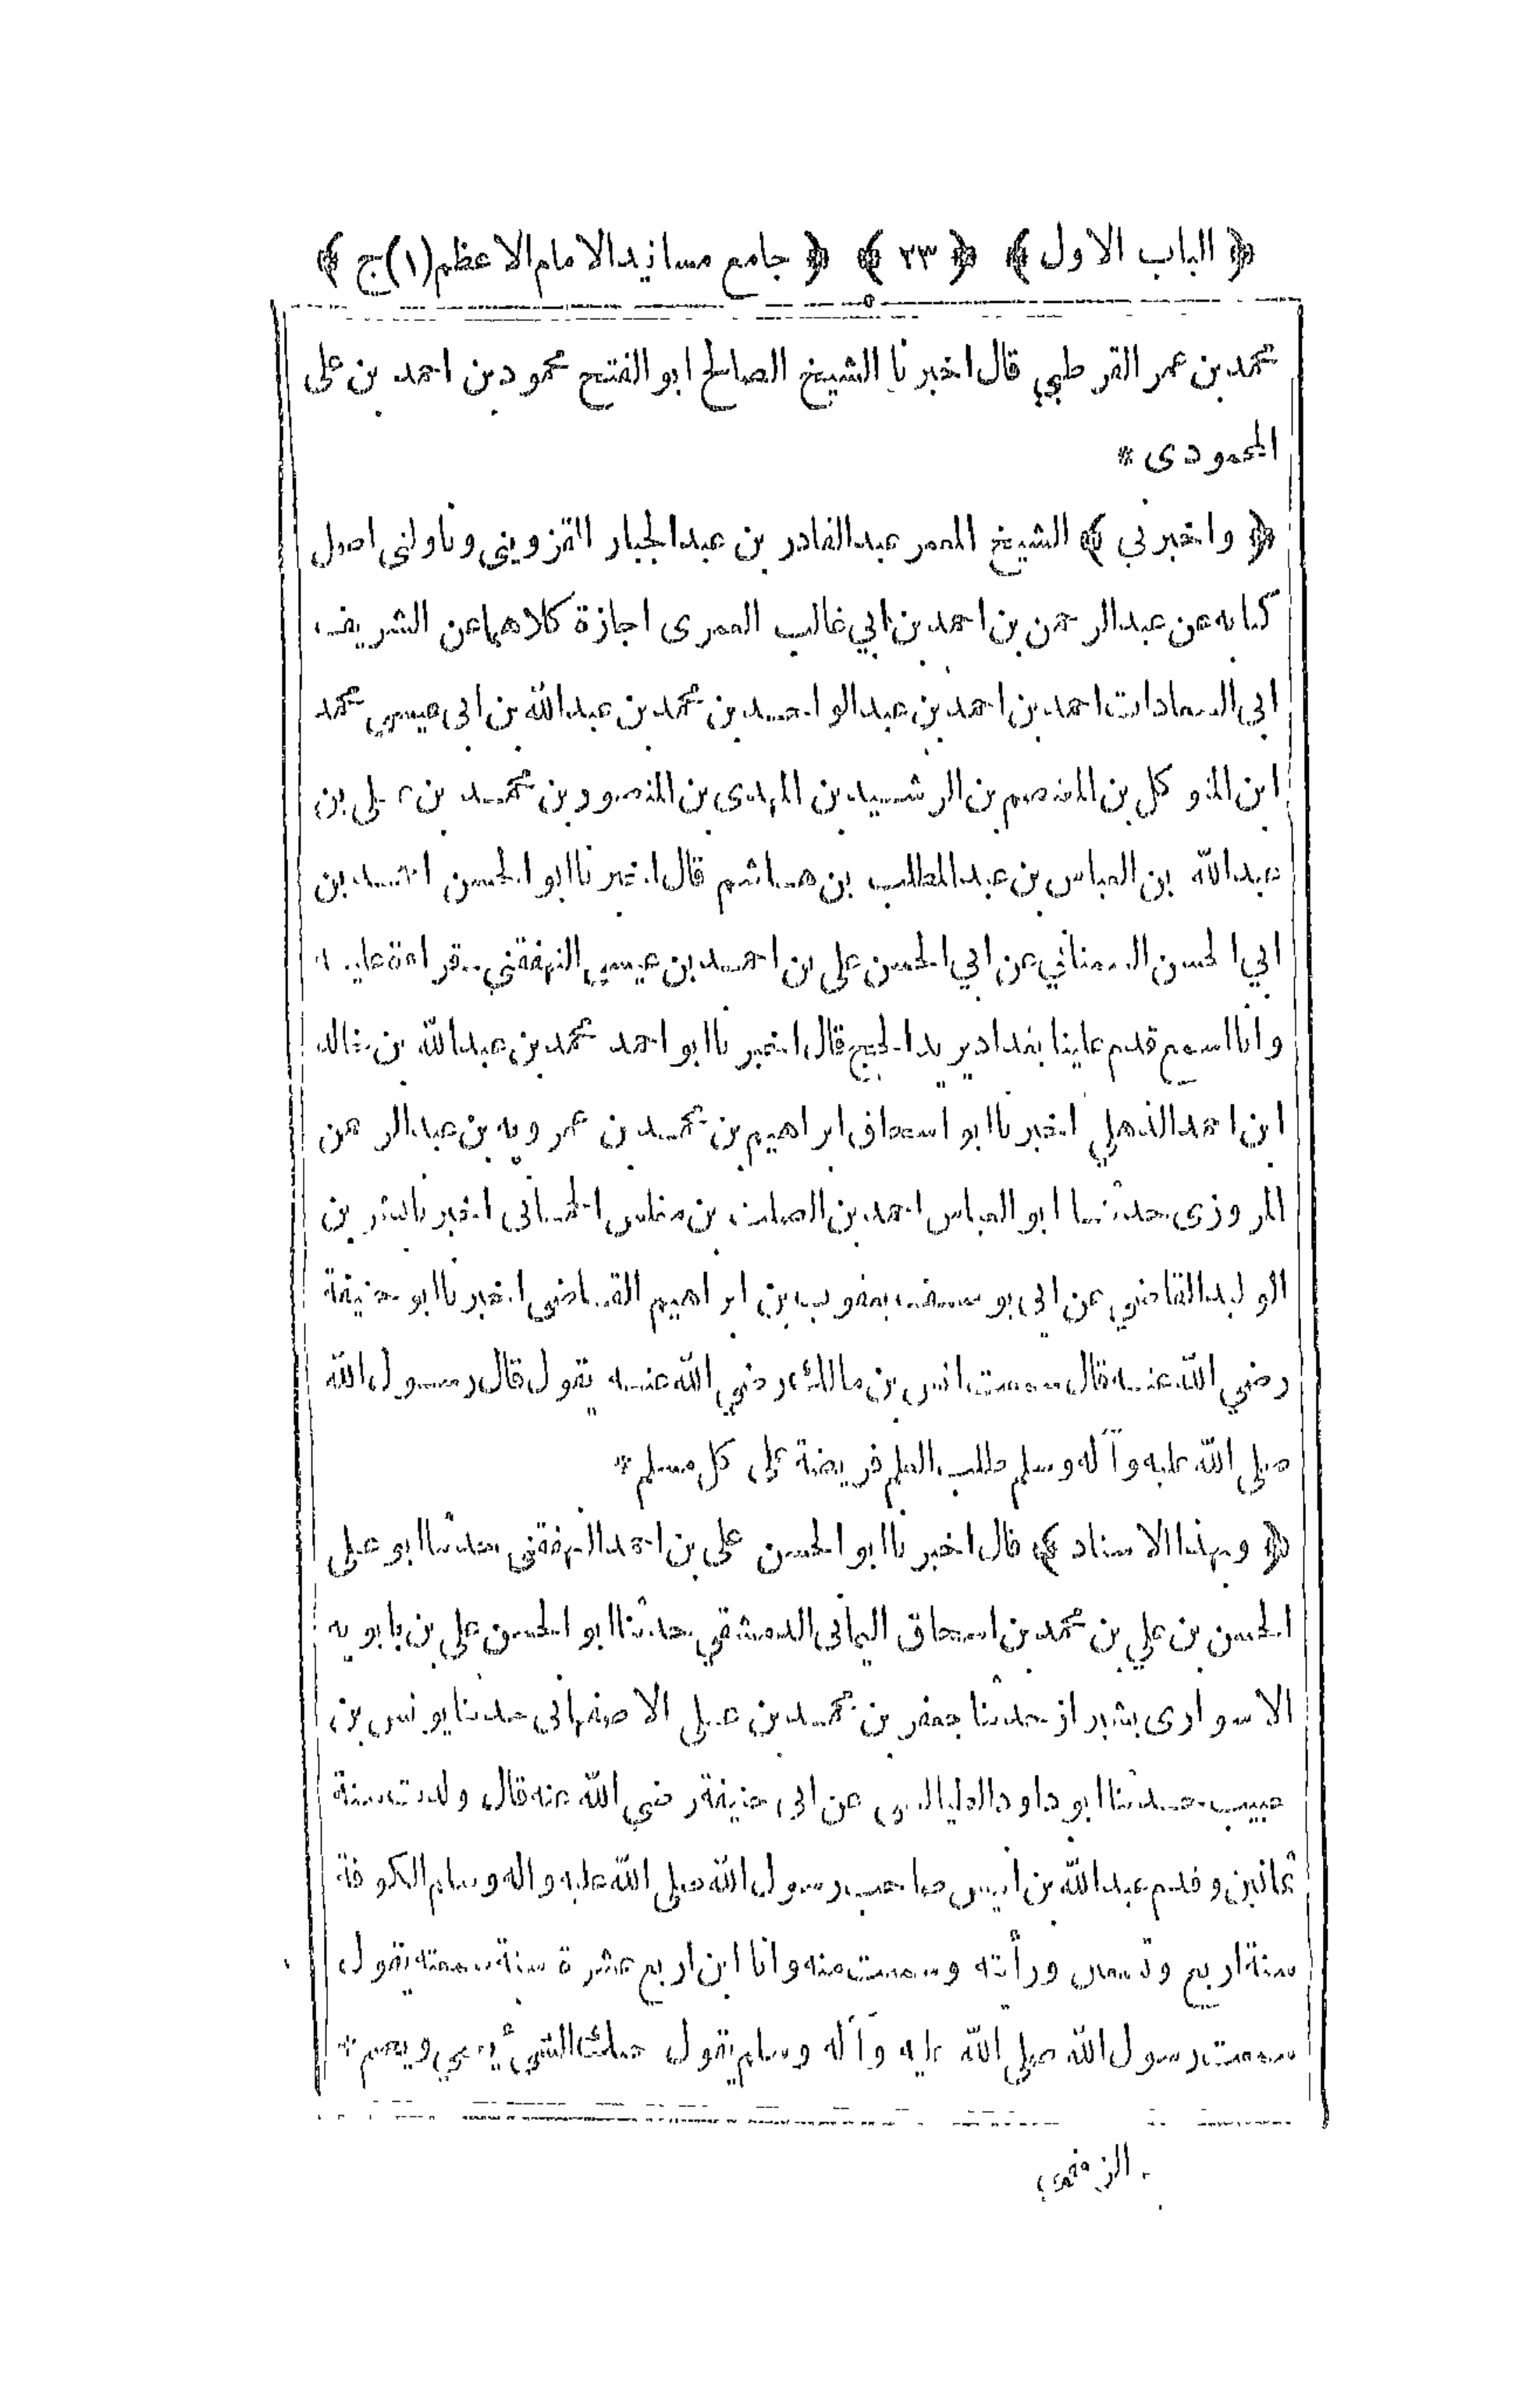 ﴿ الباب الاول ﴾ ﴿ ٢٣ ﴾ ﴿ جامع مسانيد الامام الاعظم (١) ج ﴾
محمد بن عمر القرطبي قال اخبرنا الشيخ الصالح ابو الفتح محمود بن احمد بن على
المحمودى *
﴿ واخبرني ﴾ الشيخ المعمر عبد القادر بن عبد الجبار القزويني وناولنى اصل
كتابه عن عبد الرحمن بن احمد بن ابي غالب العمرى اجازة كلاهما عن الشريف
ابى السعادات احمد بن احمد بن عبد الواحد بن محمد بن عبد الله بن ابى عيسى محمد
ابن المتوكل بن المعتصم بن الرشيد بن المهدى بن المنصور بن محمد بن على بن
عبد الله بن العباس بن عبد المطلب بن هاشم قال اخبرنا ابو الحسن احمد بن
ابي الحسن السمناني عن ابي الحسن على بن احمد بن عيسى النهفقني قراءة عليه
وانا اسمع قدم علينا بغداد يريد الحج قال اخبرنا ابو احمد محمد بن عبد الله بن خالد
ابن احمد الذهلي اخبرنا ابو اسحاق ابراهيم بن محمد بن عمرويه بن عبد الرحمن
المروزى حدثنا ابو العباس احمد بن الصلت بن مغلس الحمانى اخبرنا بشر بن
الوليد القاضي عن ابى يوسف يعقوب بن ابراهيم القاضى اخبرنا ابو حنيفة
رضي الله عنه قال سمعت انس بن مالك رضي الله عنه يقول قال رسول الله
صلى الله عليه وآله وسلم طلب العلم فريضة على كل مسلم *
﴿ وبهذا الاسناد ﴾ قال اخبرنا ابو الحسن على بن احمد النهفقنى حدثنا ابو على
الحسن بن علي بن محمد بن اسحاق اليمانى الدمشقي حدثنا ابو الحسن علي بن بابويه
الاسوارى بشيراز حدثنا جعفر بن محمد بن على الاصفهانى حدثنا يونس بن
حبيب حدثنا ابو داود الطيالسى عن ابى حنيفة رضي الله عنه قال ولدت سنة
ثمانين وقدم عبد الله بن أنيس صاحب رسول الله صلى الله عليه وآله وسلم الكوفة
سنة اربع وتسعين ورأيته وسمعت منه وانا ابن اربع عشرة سنة سمعته يقول
سمعت رسول الله صلى الله عليه وآله وسلم يقول حبك الشيء يعمي ويصم *